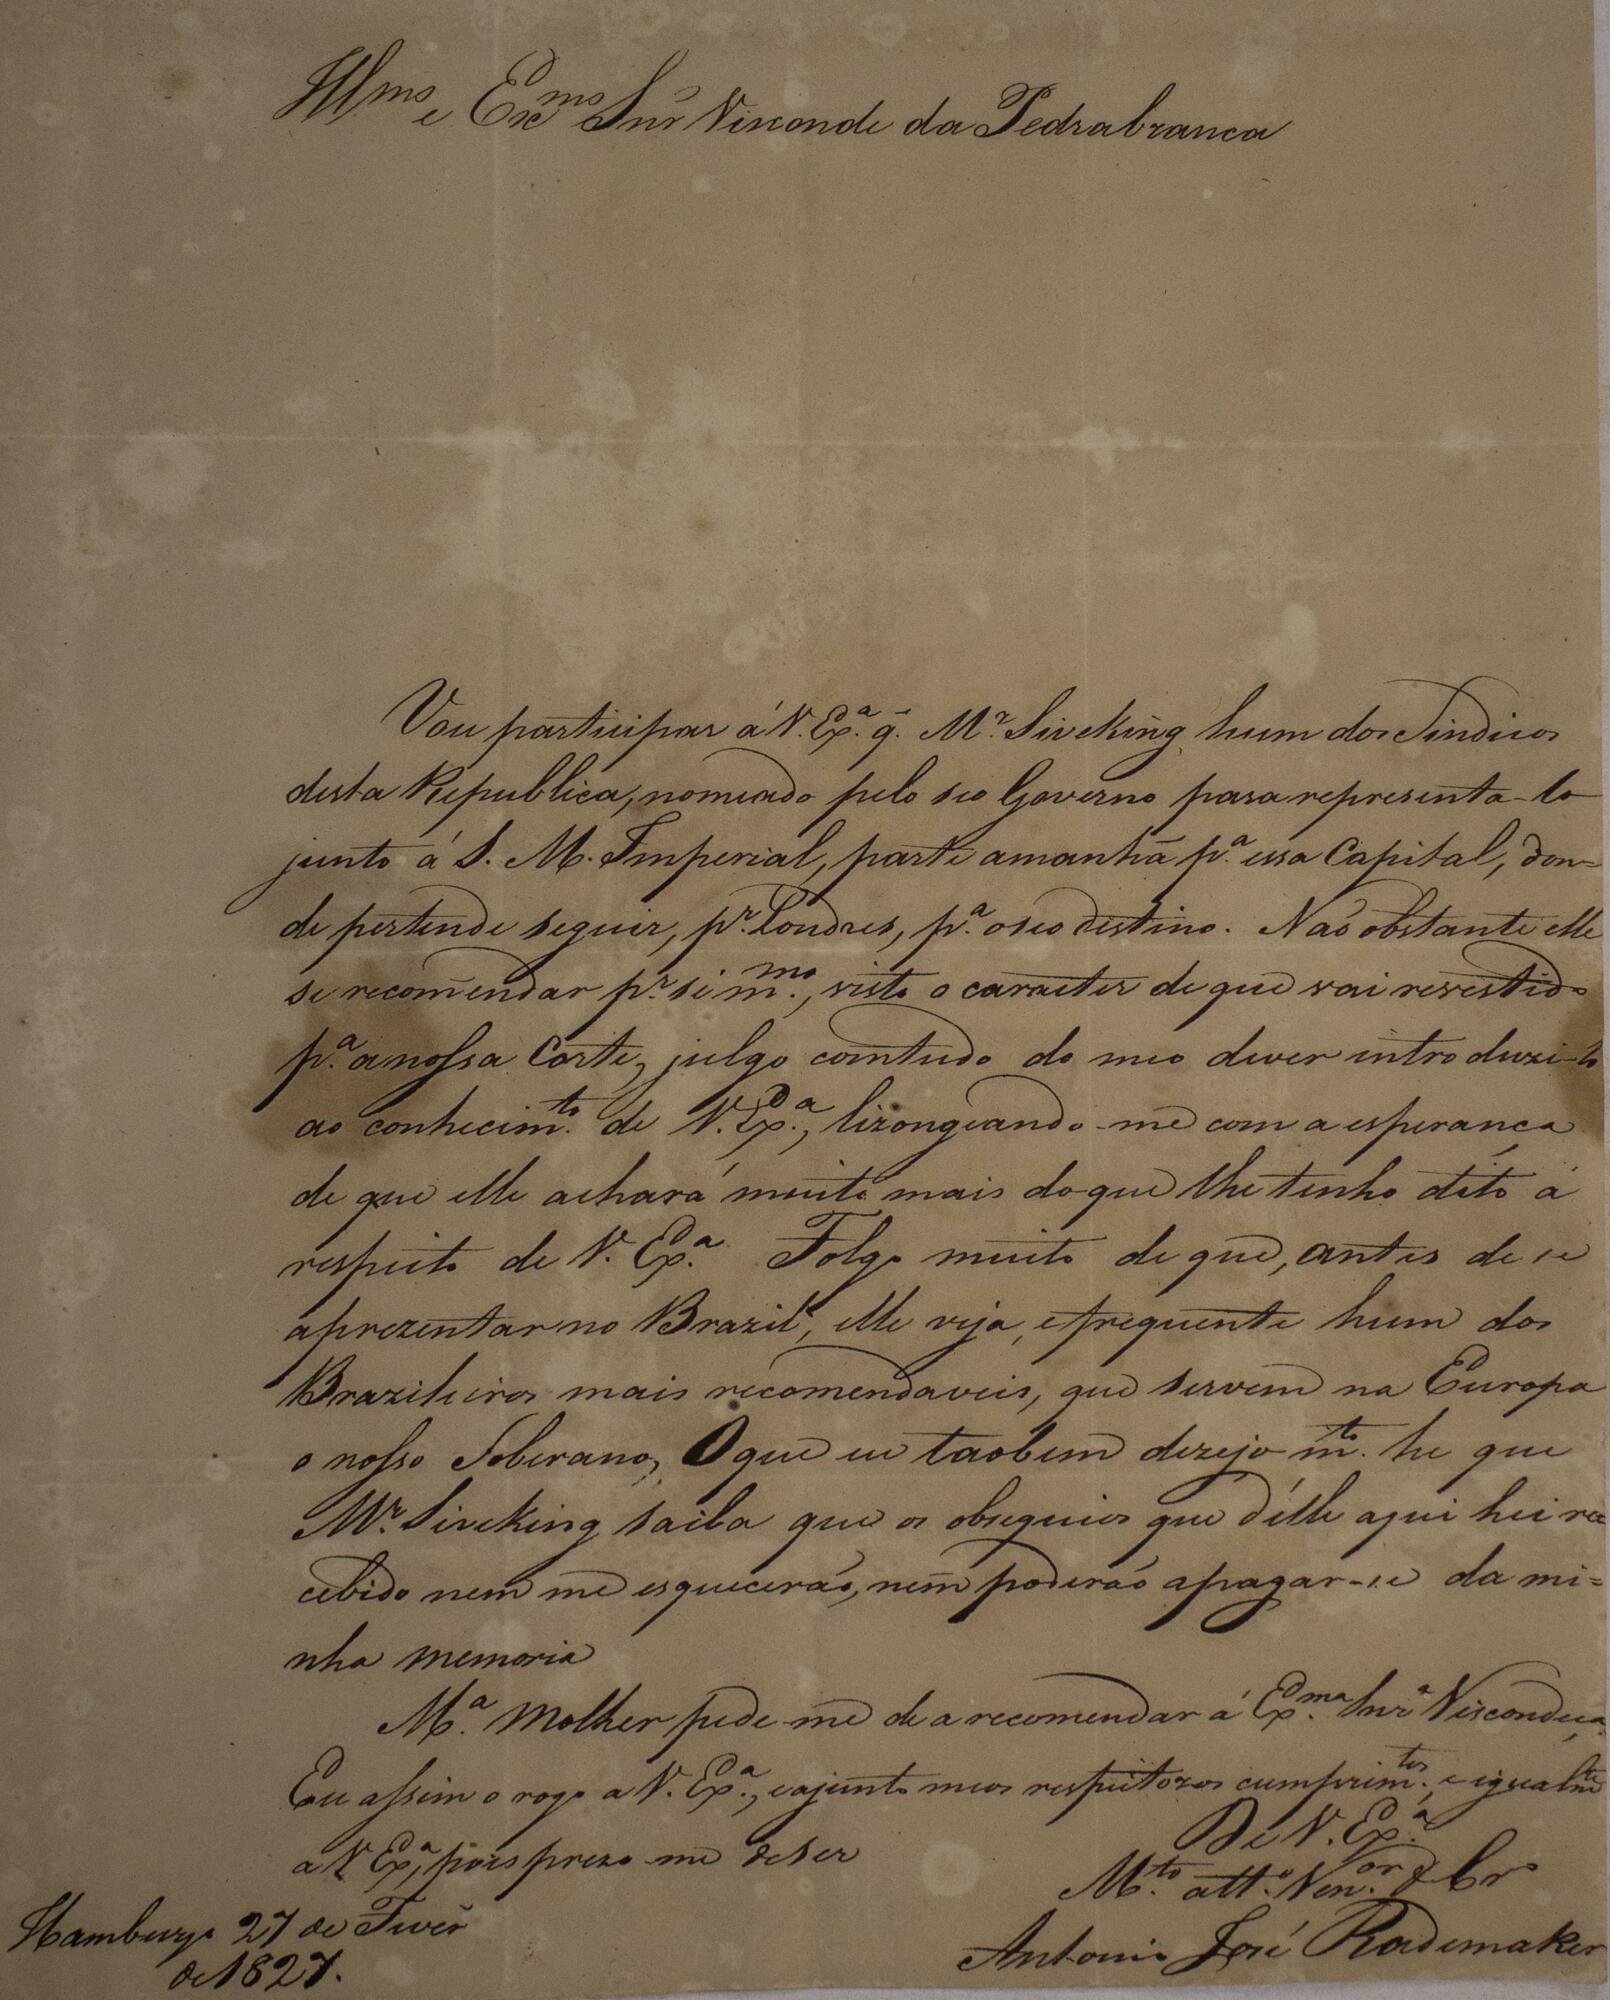 Illmo e Exmo Snr Visconde da Pedrabranca
Vou participar á V. Exa. q. Mr. Siveking hum dos Sindicos
desta Republica, nomeado pelo seo Governo para representa-lo
junto á S. M. Imperial, parte amanhã pa. essa Capital, don=
de pertende seguir, pr. Londres, pa. o seo destino. Não obstante elle
se recomendar pr. si mmo., visto o caracter de que vai revestido
pa. a nossa Corte, julgo comtudo do meo dever introduzi-lo
ao conhecimto. de V. Exa., lizongeando-me com a esperança
de que elle achará muito mais do que lhe tenho dito á
respeito de V. Exa. Folgo muito de que, antes de se
aprezentar no Brazil, elle veja, e frequente hum dos
Brazileiros mais recomendaveis, que servem na Europa
o nosso Soberano, O que eu taobem dezejo mto. he que
Mr. Siveking saiba que os obsequios que d'elle aqui hei re
cebido nem me esquecerão, nem poderão apagar-se da mi=
nha memoria
Ma. Molher pede-me de a recomendar á Exma. Snra Viscondeça.
Eu assim o rogo a V. Exa., e ajunto meos respeitozos cumprimtos. e igualmte
a V Exa, pois prezo-me de ser
De V. Exa.
Mto. atto. Venor. & Cro
Hamburgo 27 de Fever
de 1827.
Antonio José Rademaker